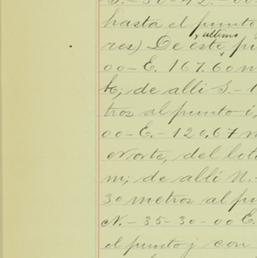 S.-30-42.-00
hasta el punto
y ultimo
ros) De este pu
00-E. 167.60 m
k; de alli S.-1
tros al punto i,
00-E.-120.67 m
Norte, del lot
m; de alli N.-
30 metros al pu
N.-35-30-00 E.
el punto j con